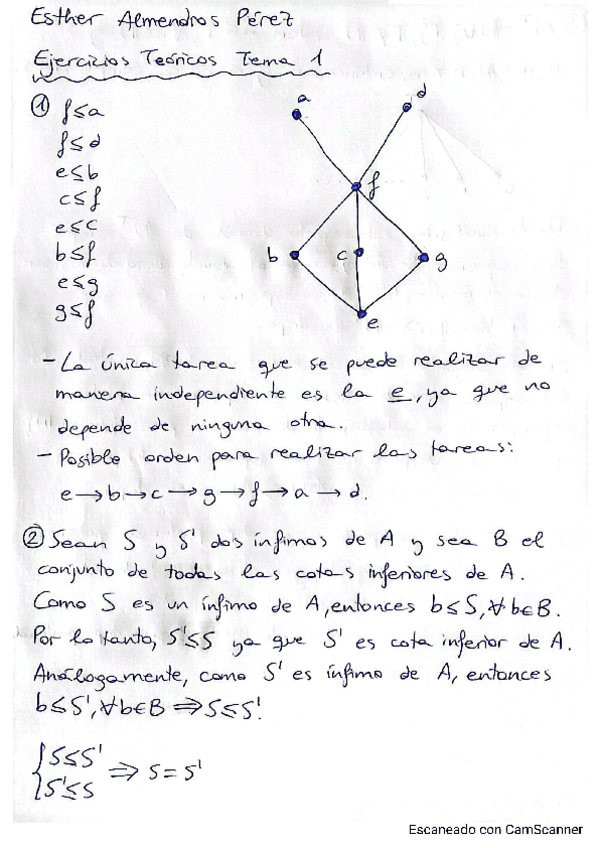 Esther Almendros Pérez
Ejercicios Teóricos Tema 1
① f≤a
f≤d
e≤b
c≤f
e≤c
b≤f
e≤g
g≤f
a
d
f
b
c
g
e
- La única tarea que se puede realizar de
manera independiente es la e, ya que no
depende de ninguna otra.
- Posible orden para realizar las tareas:
e→b→c→g→f→a→d.
② Sean S y S' dos ínfimos de A y sea B el
conjunto de todas las cotas inferiores de A.
Como S es un ínfimo de A, entonces b≤S, ∀b∈B.
Por lo tanto, S'≤S ya que S' es cota inferior de A.
Análogamente, como S' es ínfimo de A, entonces
b≤S', ∀b∈B ⇒ S≤S'.
{S≤S'
S'≤S ⇒ S=S'
Escaneado con CamScanner